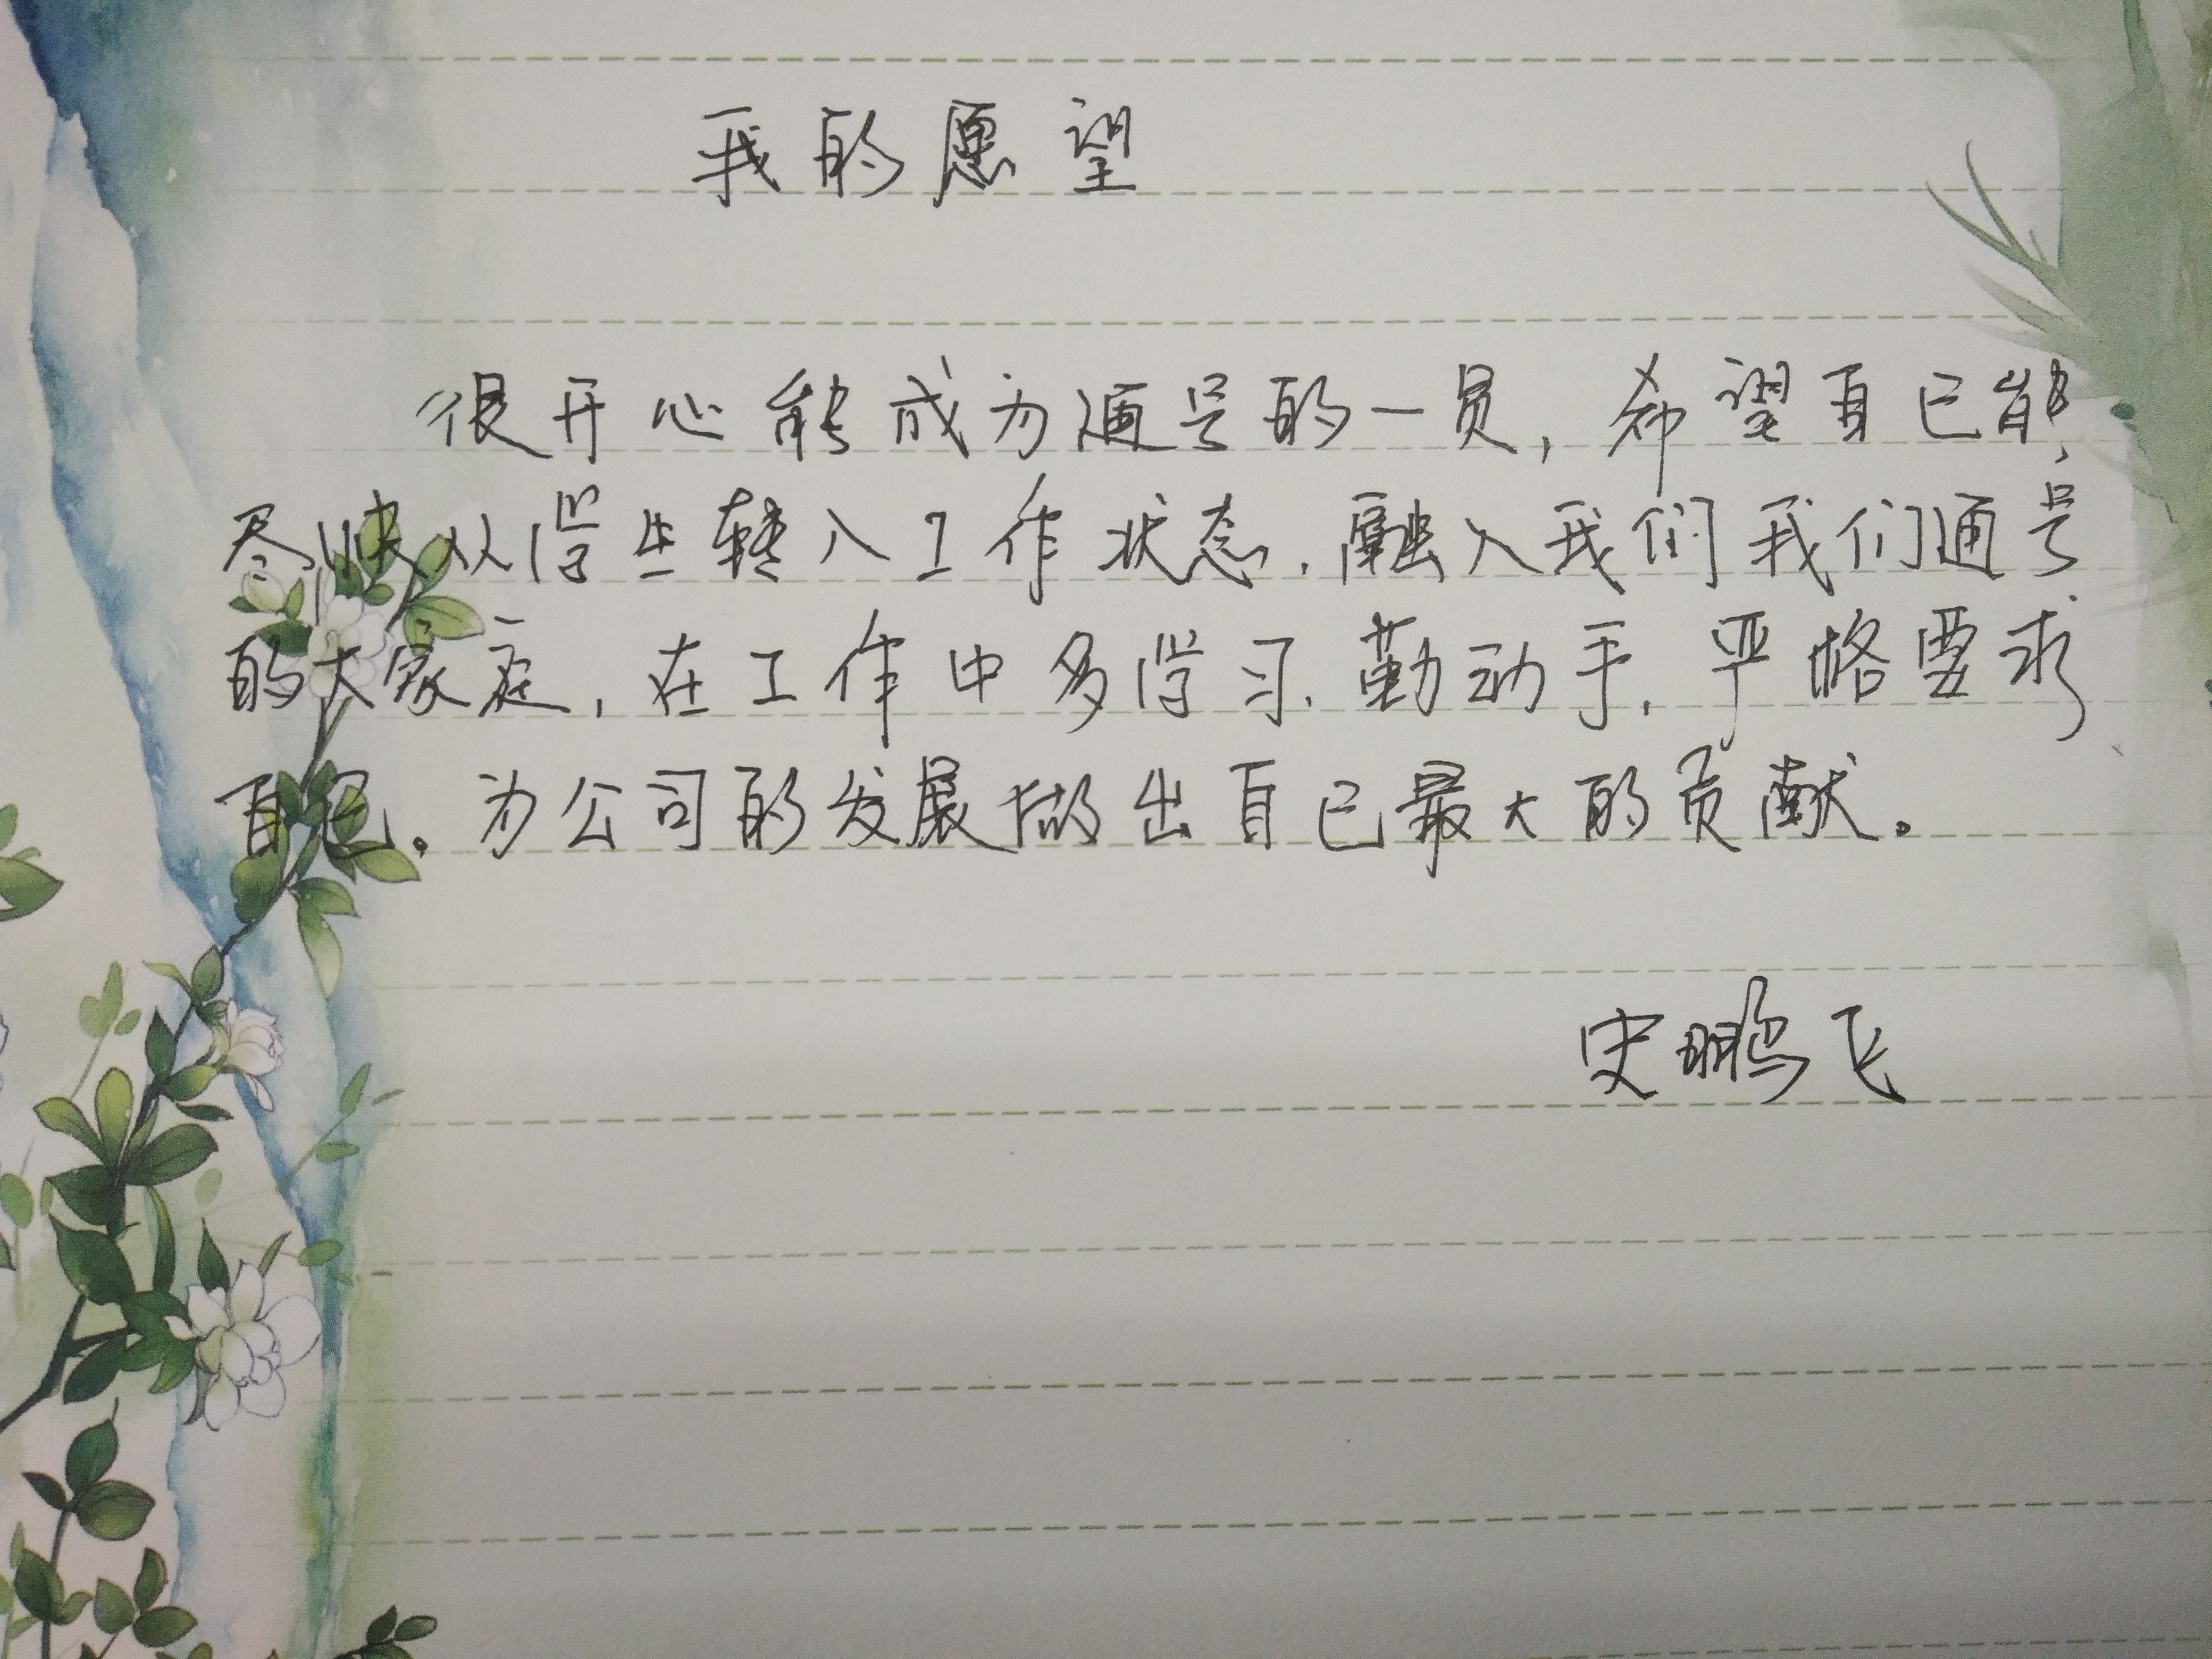 我的愿望
很开心能成为通号的一员，希望自己能
尽快从学生转入工作状态，融入我们我们通号
的大家庭，在工作中多学习，勤动手，严格要求
自己。为公司的发展做出自己最大的贡献。
史鹏飞